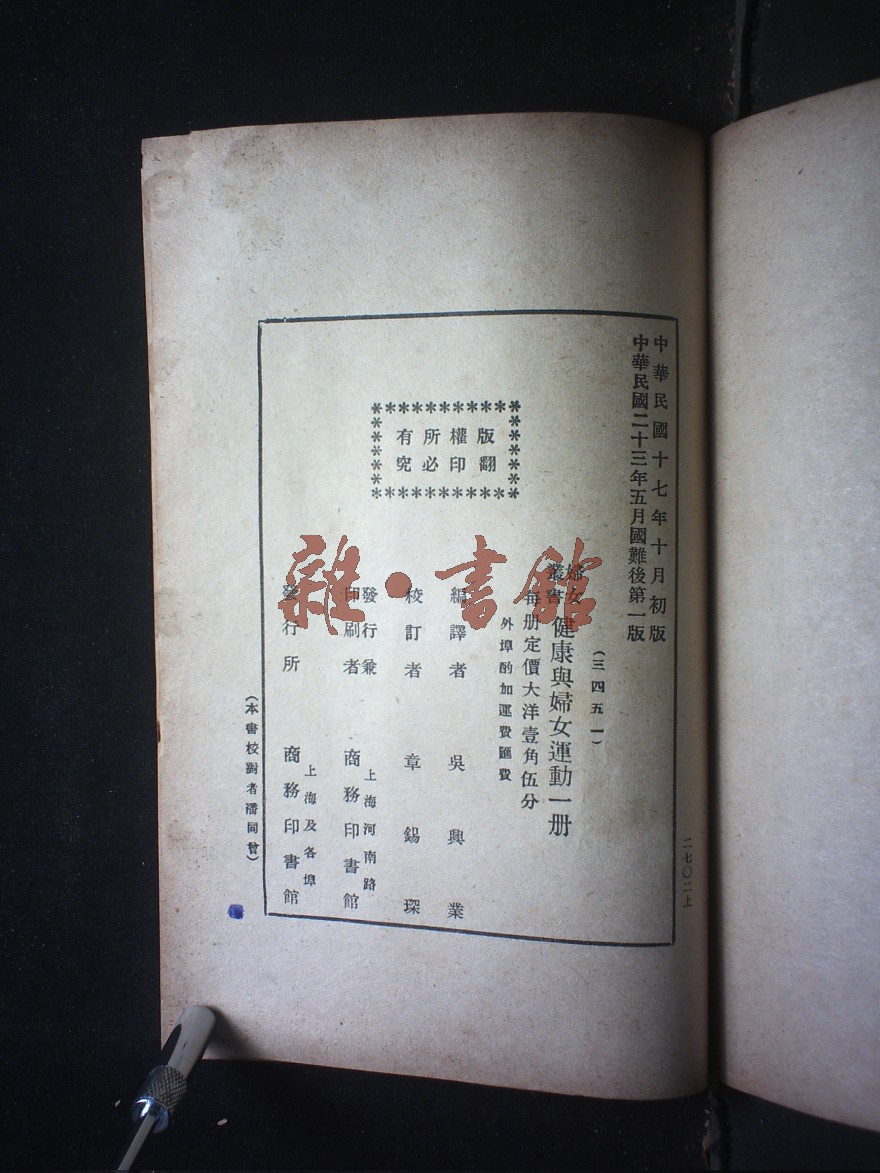 中華民國十七年十月初版
中華民國二十三年五月國難後第一版
版權所有
翻印必究
(三四五一)
婦女叢書
健康與婦女運動一册
每册定價大洋壹角伍分
外埠酌加運費匯費
編譯者 吳興業
校訂者 章錫琛
發行兼印刷者
上海河南路
商務印書館
發行所
上海及各埠
商務印書館
(本書校對者潘同曾)
二七〇二上
雜·書館